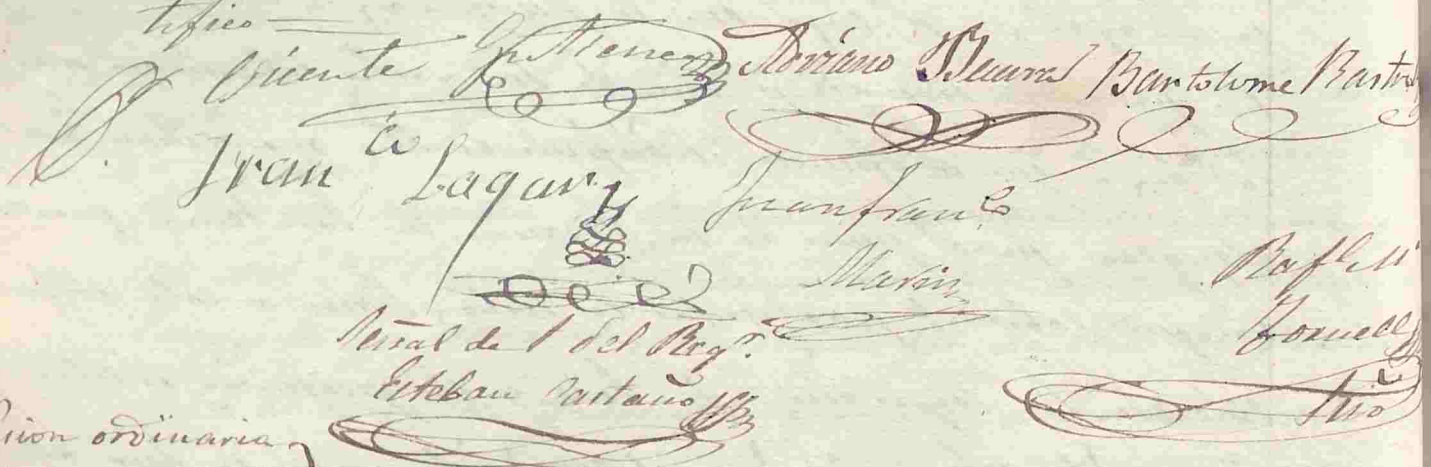 tifico
Vicente Gutierrez Doriano Becerra Bartolome Bast
Fran co Lagar
Juan fran co
Marin
Rafl M
Tornell
Srio
Señal de del Regr.
Esteban Castaño
sion ordinaria